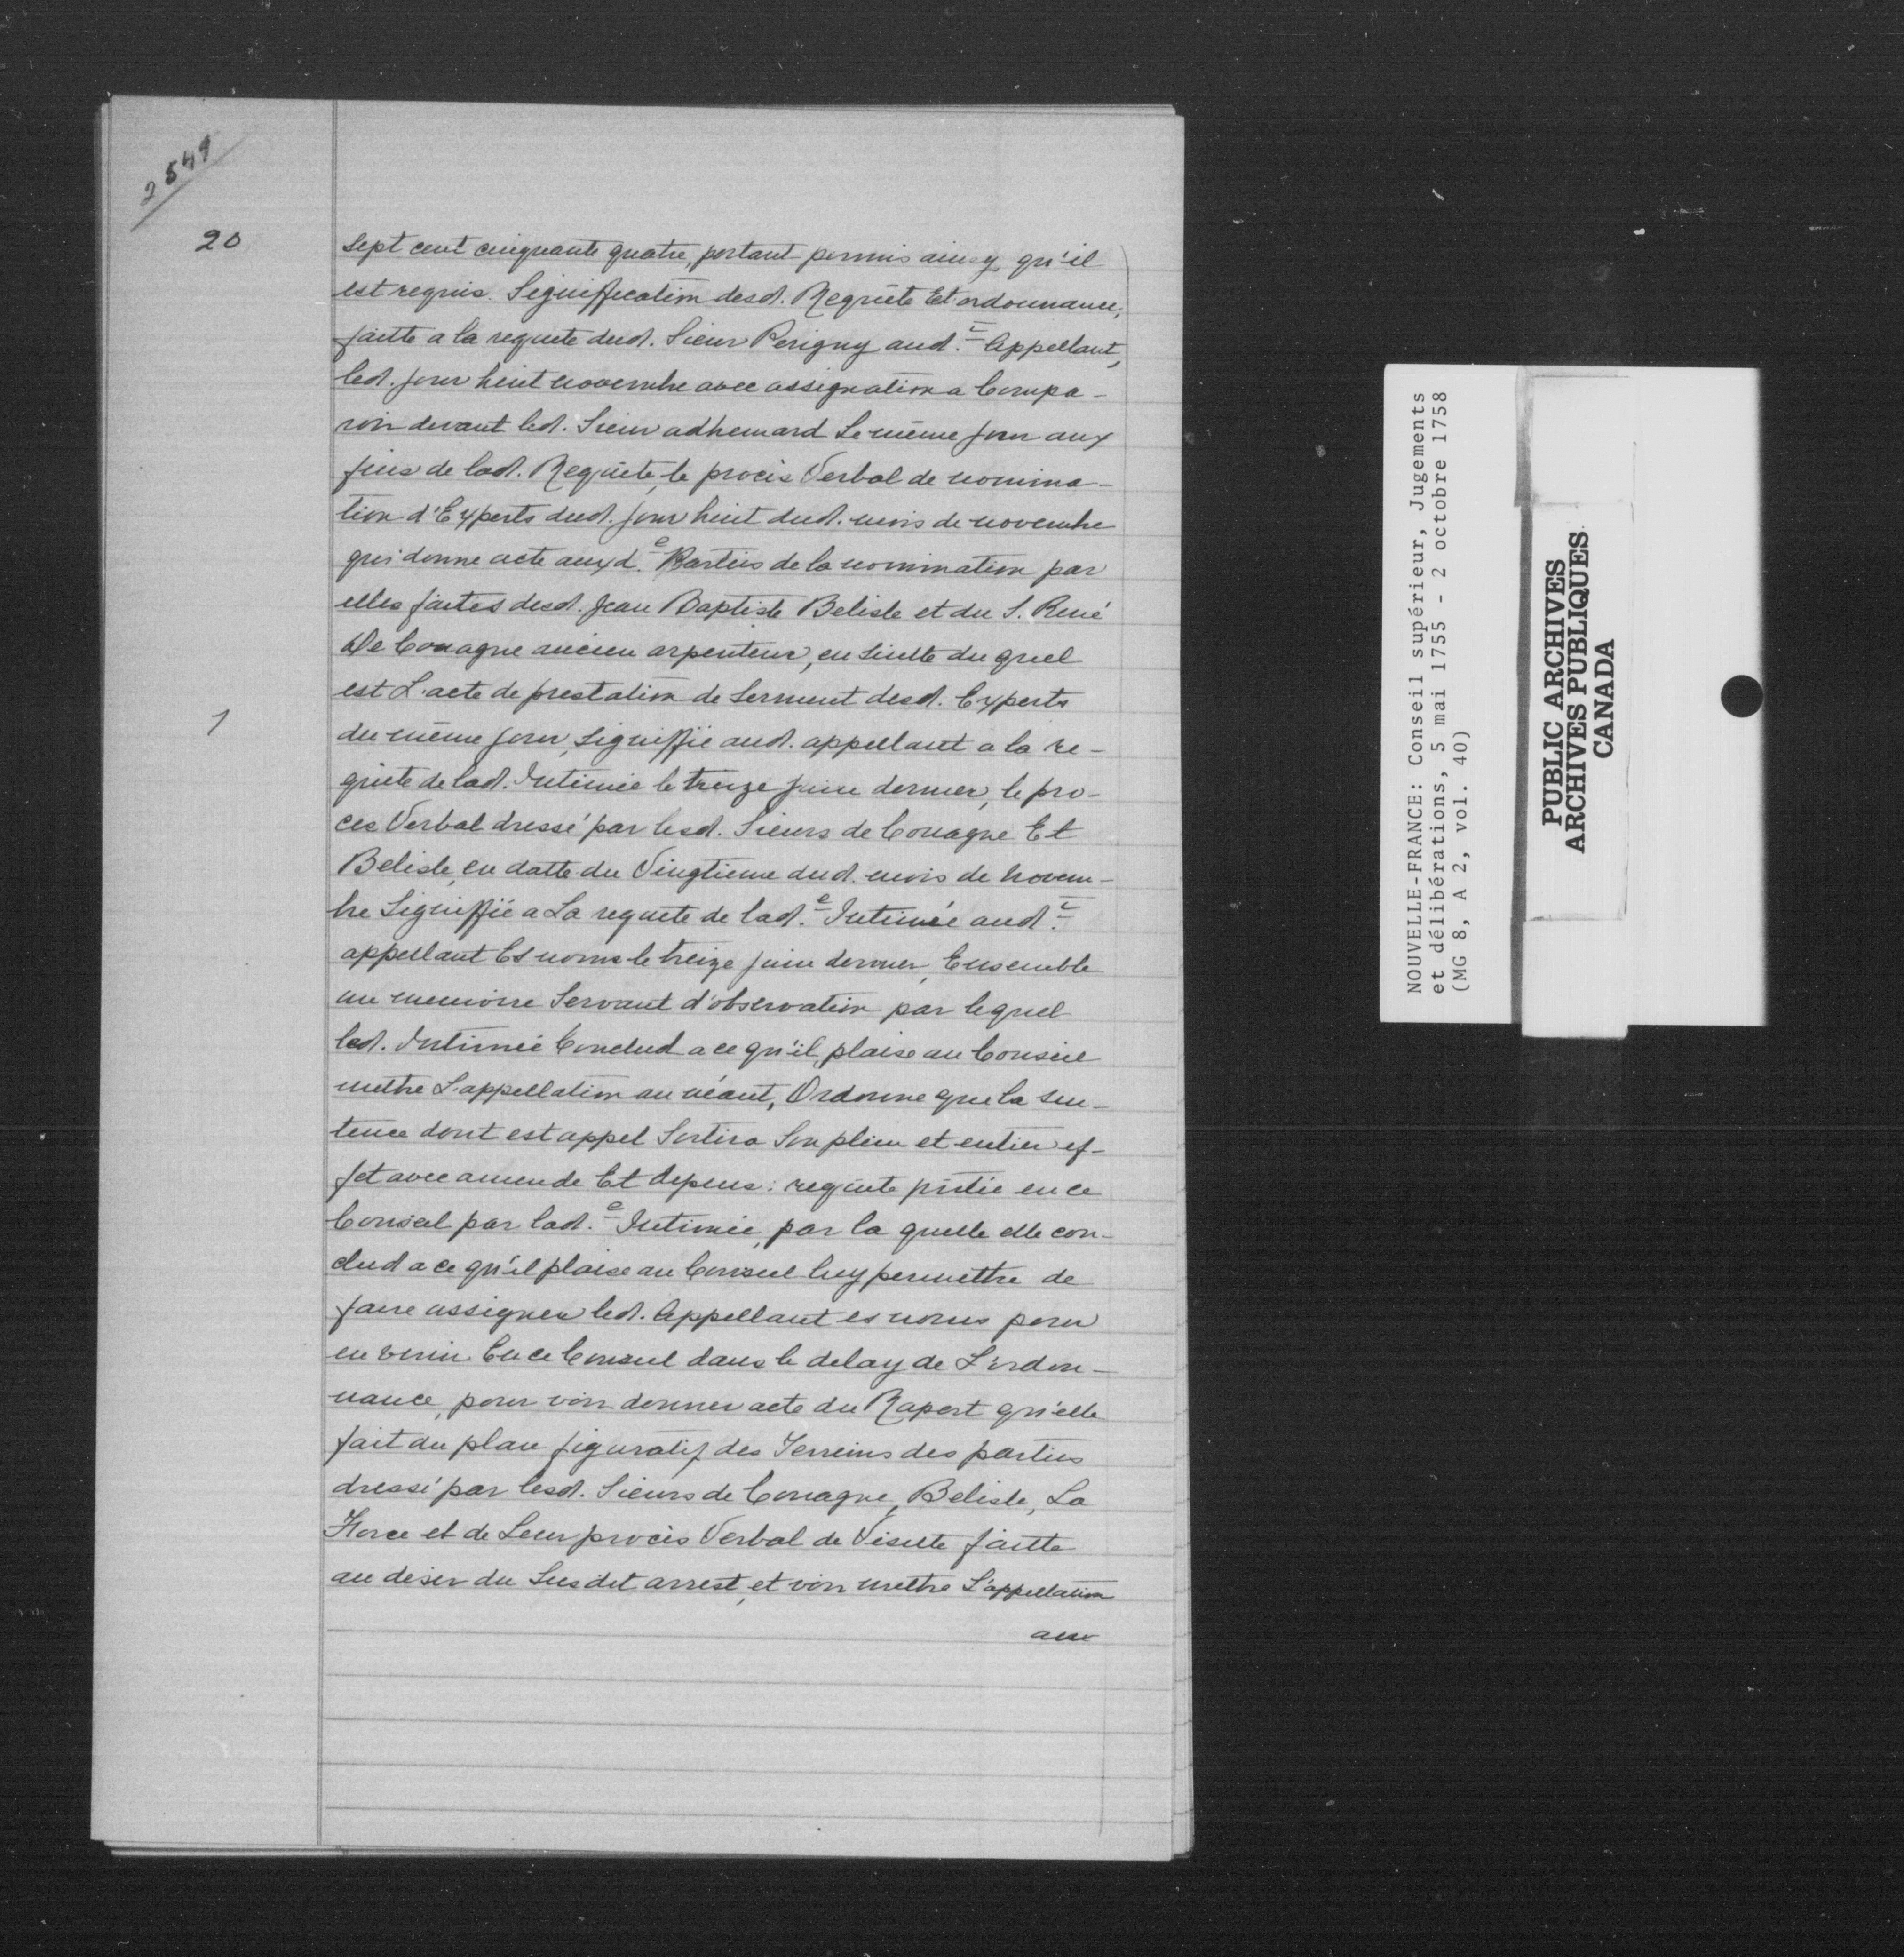 2549
20
sept cent cinquante quatre, portant permis ainsy qu'il
est requis. Signiffication desd. Requête Et ordonnance,
faitte a la requete dud. Sieur Perigny aud.t Appellant,
led. jour huit novembre avec assignation a Compa-
roir devant led. Sieur adhemard Le même jour aux
fins de lad. Requête, le procès Verbal de nomina-
tion d'Experts dud. jour huit dud. mois de novembre
qui donne acte auxd.e Parties de la nomination par
elles faites desd. Jean Baptiste Belisle et du S. René
De Couagne ancien arpenteur, en suitte du quel
est L'acte de prestation de Serment desd. Experts
1
du même jour, signiffié aud. appellant a la re-
quete de lad. Intimée le treize juin dernier, le pro-
ces Verbal dressé par lesd. Sieurs de Couagne Et
Belisle, en datte du Vingtieme dud. mois de novem-
bre Signiffié a La requete de lad.e Intimée aud.t
appellant Es noms le treize juin dernier, Ensemble
un memoire Servant d'observation par lequel
led. Intimée Conclud a ce qu'il plaise au Conseil
mettre L'appellation au néant, Ordonne que la sen-
tence dont est appel Sortira Son plein et entier ef-
fet avec amende Et depens: requete ptée en ce
Conseil par lad.e Intimée, par la quelle elle con-
clud a ce qu'il plaise au Conseil luy permettre de
faire assigner led. Appellant es noms pour
en venir En ce Conseil dans le delay de L'ordon-
nance, pour voir donner acte du Raport qu'elle
fait du plan figuratif des Terreins des parties
dressé par lesd. Sieurs de Couagne, Belisle, La
Force et de Leur procès Verbal de Visitte faitte
au desir du Susdit arrest, et voir mettre L'appellation
au
NOUVELLE-FRANCE: Conseil supérieur, Jugements
et délibérations, 5 mai 1755 - 2 octobre 1758
(MG 8, A 2, vol. 40)
PUBLIC ARCHIVES
ARCHIVES PUBLIQUES
CANADA